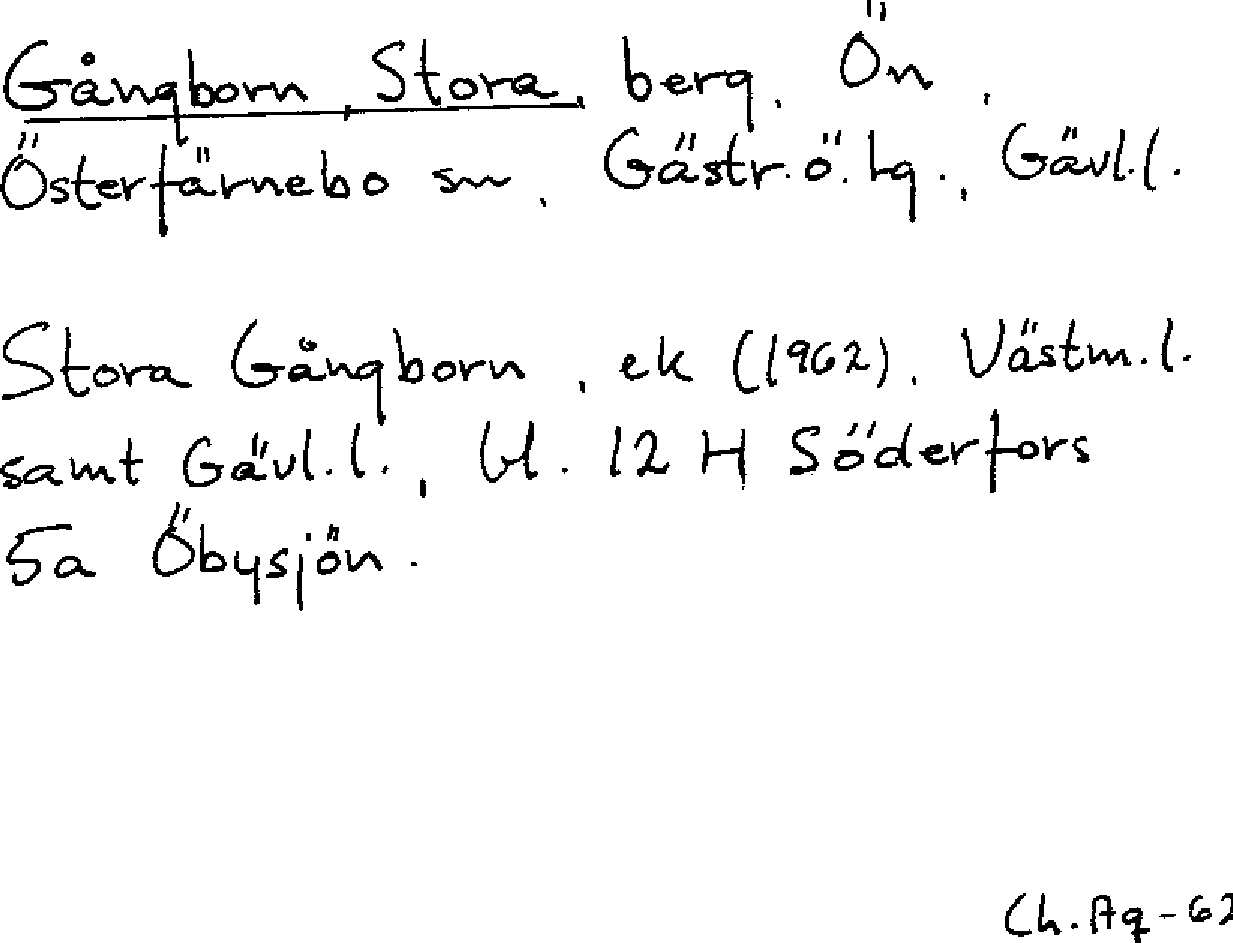 Gångborn, Stora, berg, Ön,
Österfärnebo sn, Gästr.ö.tg., Gävl.l.
Stora Gångborn, ek (1962), Västm.l.
samt Gävl.l., bl. 12 H Söderfors
5a Öbysjön.
Ch.Ag-62